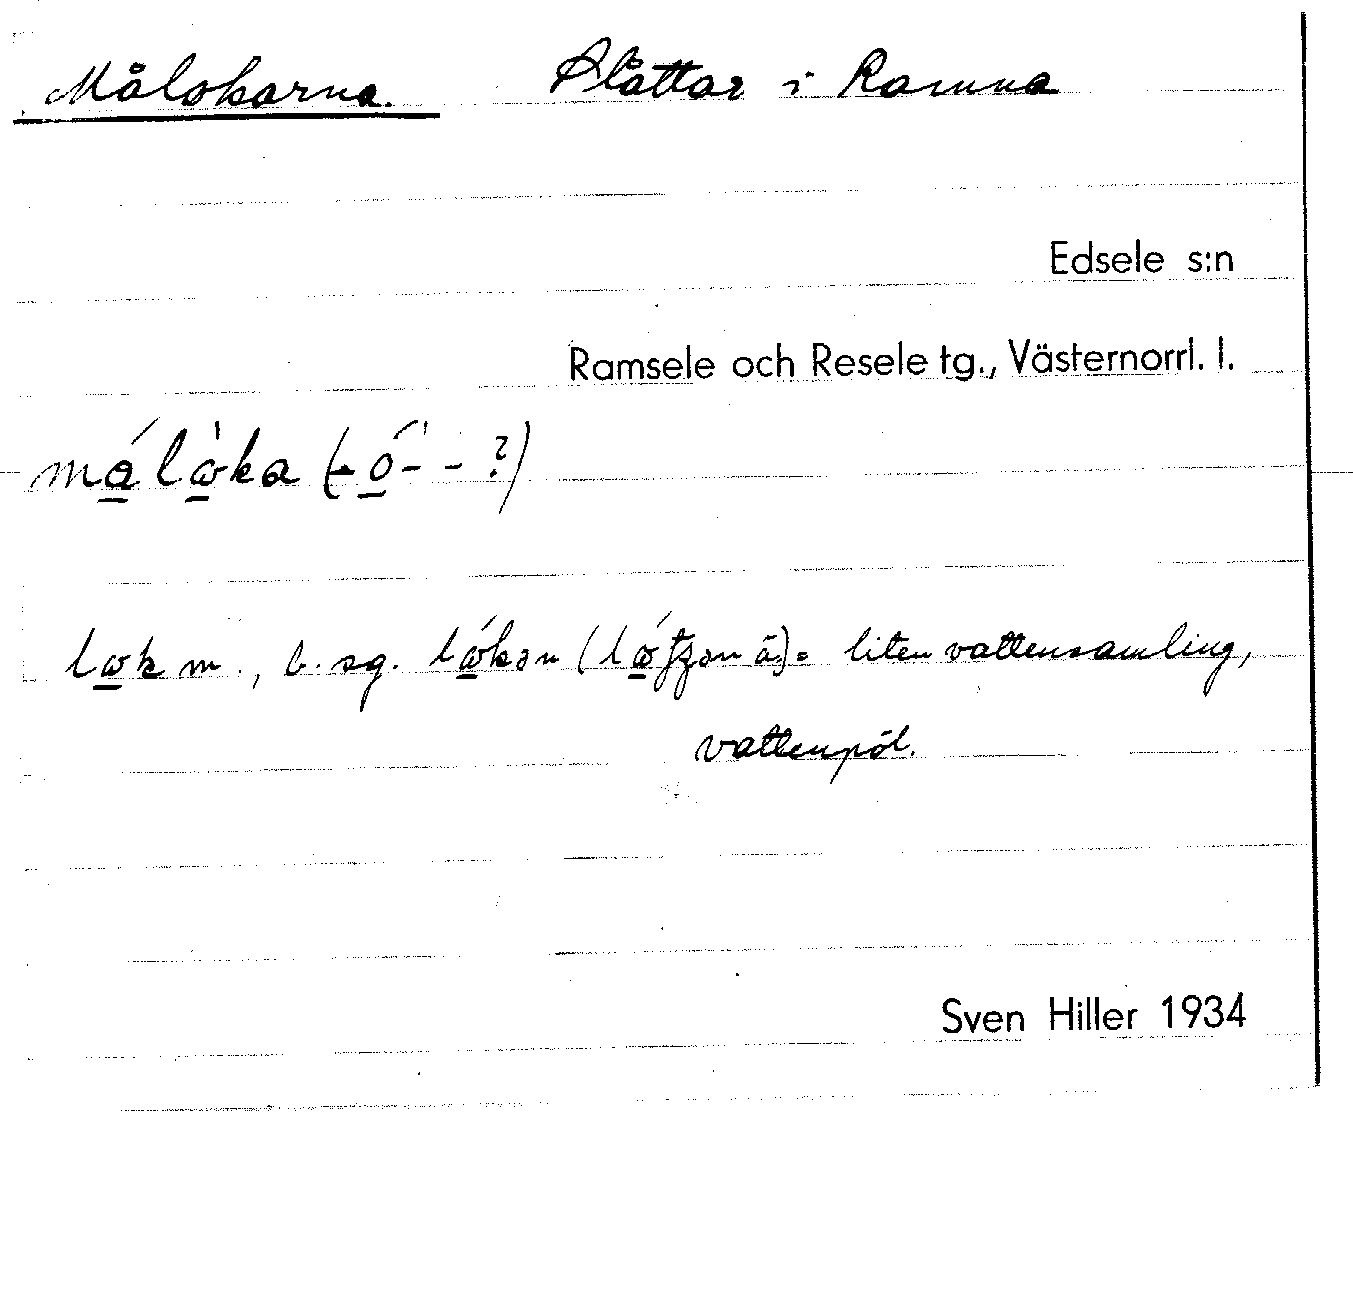 Målokarna. Slåttar i Ramna
Edsele s:n
Ramsele och Resele tg., Västernorrl. l.
målωka (-o- - ?)
lωk m., b. sg. lωkən ( = liten vattensamling,
vattenpöl.
Sven Hiller 1934